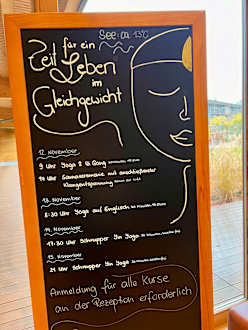 See: ca. 13°C
Zeit für ein
Leben
im
Gleichgewicht
12. November
9 Uhr Yoga & Qi Gong
14 Uhr Saunazeremonie mit anschließender
Klangentspannung
13. November
8:30 Uhr Yoga auf Englisch
14. November
17:30 Uhr Schnupper Yin Yoga
15. November
21 Uhr Schnupper Yin Yoga
Anmeldung für alle Kurse
an der Rezeption erforderlich